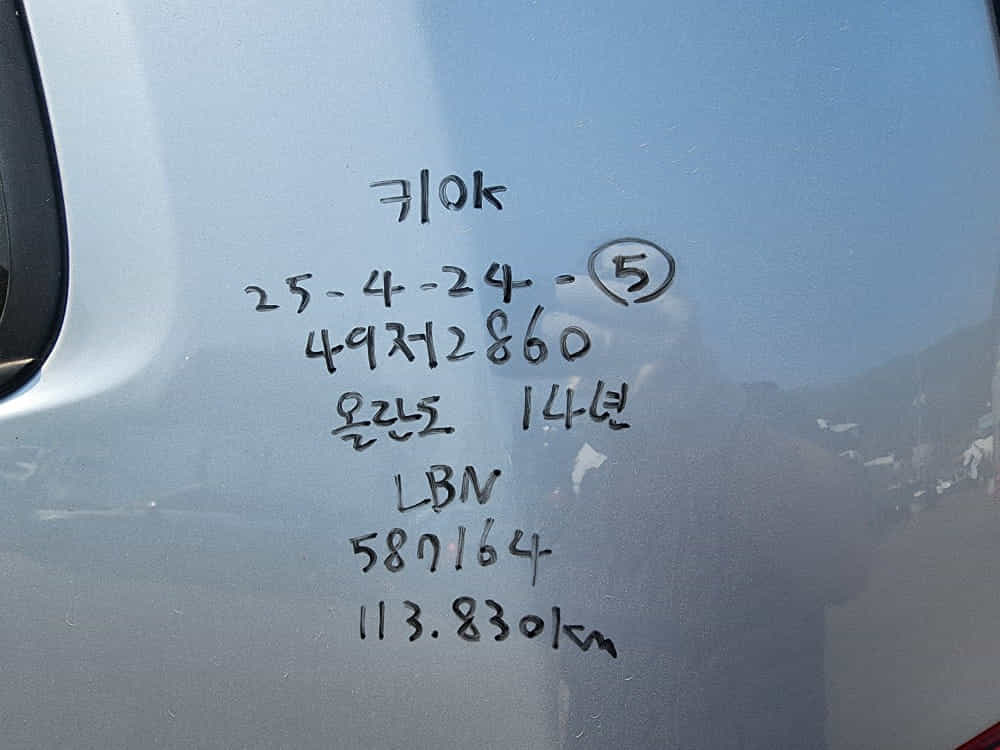 키OK
25-4-24-⑤
49저2860
올란도 14년
LBN
587164
113.830km